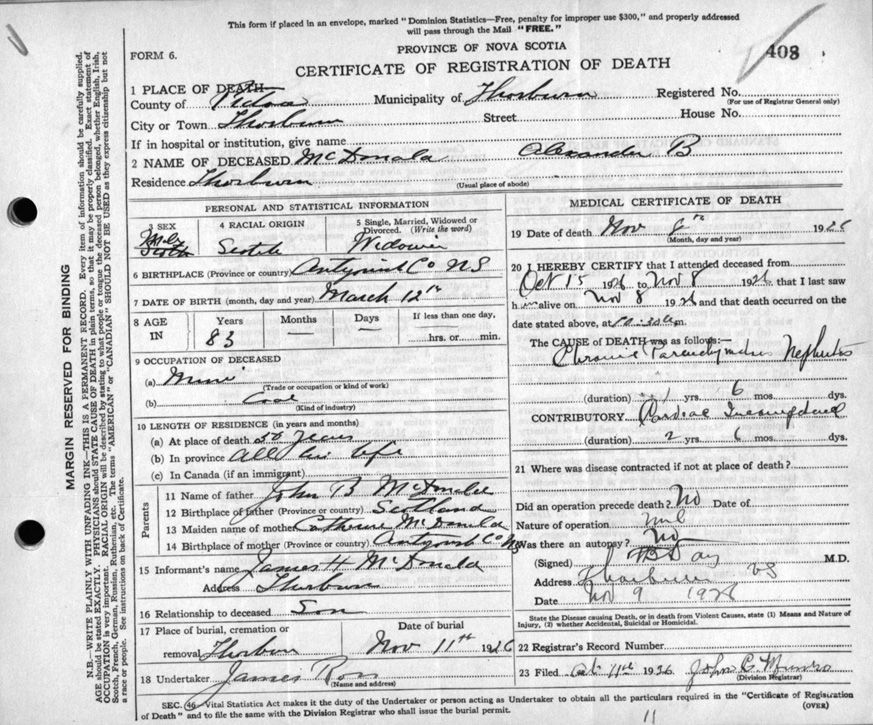 This form if placed in an envelope, marked "Dominion Statistics—Free, penalty for improper use $300," and properly addressed
will pass through the Mail "FREE."
PROVINCE OF NOVA SCOTIA
FORM 6.
403
CERTIFICATE OF REGISTRATION OF DEATH
1 PLACE OF DEATH—
County of Pictou Municipality of Thorburn Registered No.
(For use of Registrar General only)
City or Town Thorburn Street House No.
If in hospital or institution, give name
2 NAME OF DECEASED McDonald Alexander B
Residence Thorburn
(Usual place of abode)
PERSONAL AND STATISTICAL INFORMATION
3 SEX 4 RACIAL ORIGIN 5 Single, Married, Widowed or Divorced. (Write the word)
Male Scotch Widower
6 BIRTHPLACE (Province or country) Antigonish Co NS
7 DATE OF BIRTH (month, day and year) March 12th
8 AGE IN Years Months Days If less than one day,
83 hrs. or min.
9 OCCUPATION OF DECEASED
(a) Miner
(Trade or occupation or kind of work)
(b) Coal
(Kind of industry)
10 LENGTH OF RESIDENCE (in years and months)
(a) At place of death 50 years
(b) In province All his life
(c) In Canada (if an immigrant)
Parents
11 Name of father John B McDonald
12 Birthplace of father (Province or country) Scotland
13 Maiden name of mother Catherine McDonald
14 Birthplace of mother (Province or country) Antigonish Co NS
15 Informant's name James H McDonald
Address Thorburn
16 Relationship to deceased Son
17 Place of burial, cremation or removal Thorburn Date of burial Nov 11th 1926
18 Undertaker James Ross
(Name and address)
MEDICAL CERTIFICATE OF DEATH
19 Date of death Nov 8th 1926
(Month, day and year)
20 I HEREBY CERTIFY that I attended deceased from
Oct 15 1926 to Nov 8 1926 that I last saw
h alive on Nov 8 1926 and that death occurred on the
date stated above, at
The CAUSE of DEATH was as follows:—
Chronic Parenchymatous Nephritis
(duration) 1 yrs 6 mos. dys.
CONTRIBUTORY Cardiac
(duration) 2 yrs 6 mos. dys.
21 Where was disease contracted if not at place of death?
Did an operation precede death? No Date of
Nature of operation nil
Was there an autopsy? No
(Signed) Day M.D.
Address Thorburn NS
Date Nov 9 1926
State the Disease causing Death, or in death from Violent Causes, state (1) Means and Nature of
Injury, (2) whether Accidental, Suicidal or Homicidal.
22 Registrar's Record Number
23 Filed 11th 1926 John C. Munro
(Division Registrar)
SEC. 46 Vital Statistics Act makes it the duty of the Undertaker or person acting as Undertaker to obtain all the particulars required in the "Certificate of Registration
of Death" and to file the same with the Division Registrar who shall issue the burial permit. (OVER)
11
MARGIN RESERVED FOR BINDING
N.B.—WRITE PLAINLY WITH UNFADING INK—THIS IS A PERMANENT RECORD. Every item of information should be carefully supplied.
AGE should be stated EXACTLY. PHYSICIANS should STATE CAUSE OF DEATH in plain terms, so that it may be properly classified. Exact statement of
OCCUPATION is very important. RACIAL ORIGIN will be described by stating to what people or tongue the deceased person belonged, whether English, Irish,
Scotch, French, German, Russian, Ruthenian, etc. The terms "AMERICAN" or "CANADIAN" SHOULD NOT BE USED as they express citizenship but not
a race or people. See instructions on back of Certificate.